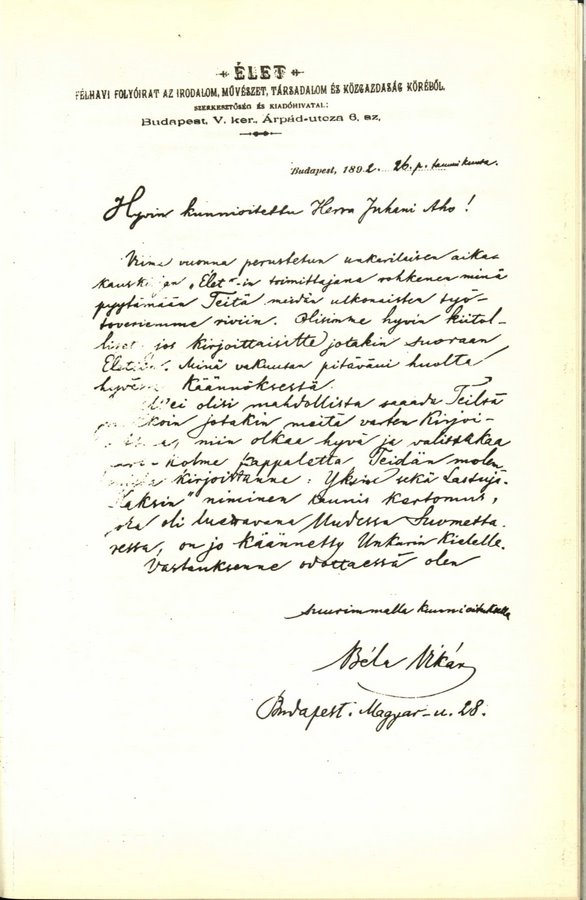 ÉLET
FÉLHAVI FOLYÓIRAT AZ IRODALOM, MŰVÉSZET, TÁRSADALOM ÉS KÖZGAZDASÁG KÖRÉBŐL.
SZERKESZTŐSÉG ÉS KIADÓHIVATAL:
Budapest, V. ker., Árpád-utcza 6, sz,
Budapest, 1892. 26. p. tammikuuta.
Hyvin kunnioitettu Herra Juhani Aho!
Viime vuonna perustetun unkarilaisen aika-
"Élet"-in toimittajana rohkenen minä
pyytämään Teitä meidän ulkonaisten työ-
toveriemme riviin. Olisimme hyvin kiitol-
liset jos kirjoittaisitte jotakin suoraan
Minä vakuutan pitäväni huolta
käännöksestä.
ei olisi mahdollista saada Teiltä
jotakin maitä varten kirjoi-
niin olkaa hyvä ja valitkaa
kolme kappaletta Teidän
kirjoittanne: Yksin sekä Lastuja.
"Kaksin" niminen kaunis kertomus,
oli luettavana Uudessa Suometta-
ressa, on jo käännetty Unkarin kielelle.
Vastauksenne odottaessa olen
suurimmalla kunnioituksella
Béla Vikár
Budapest. Magyar-u. 28.